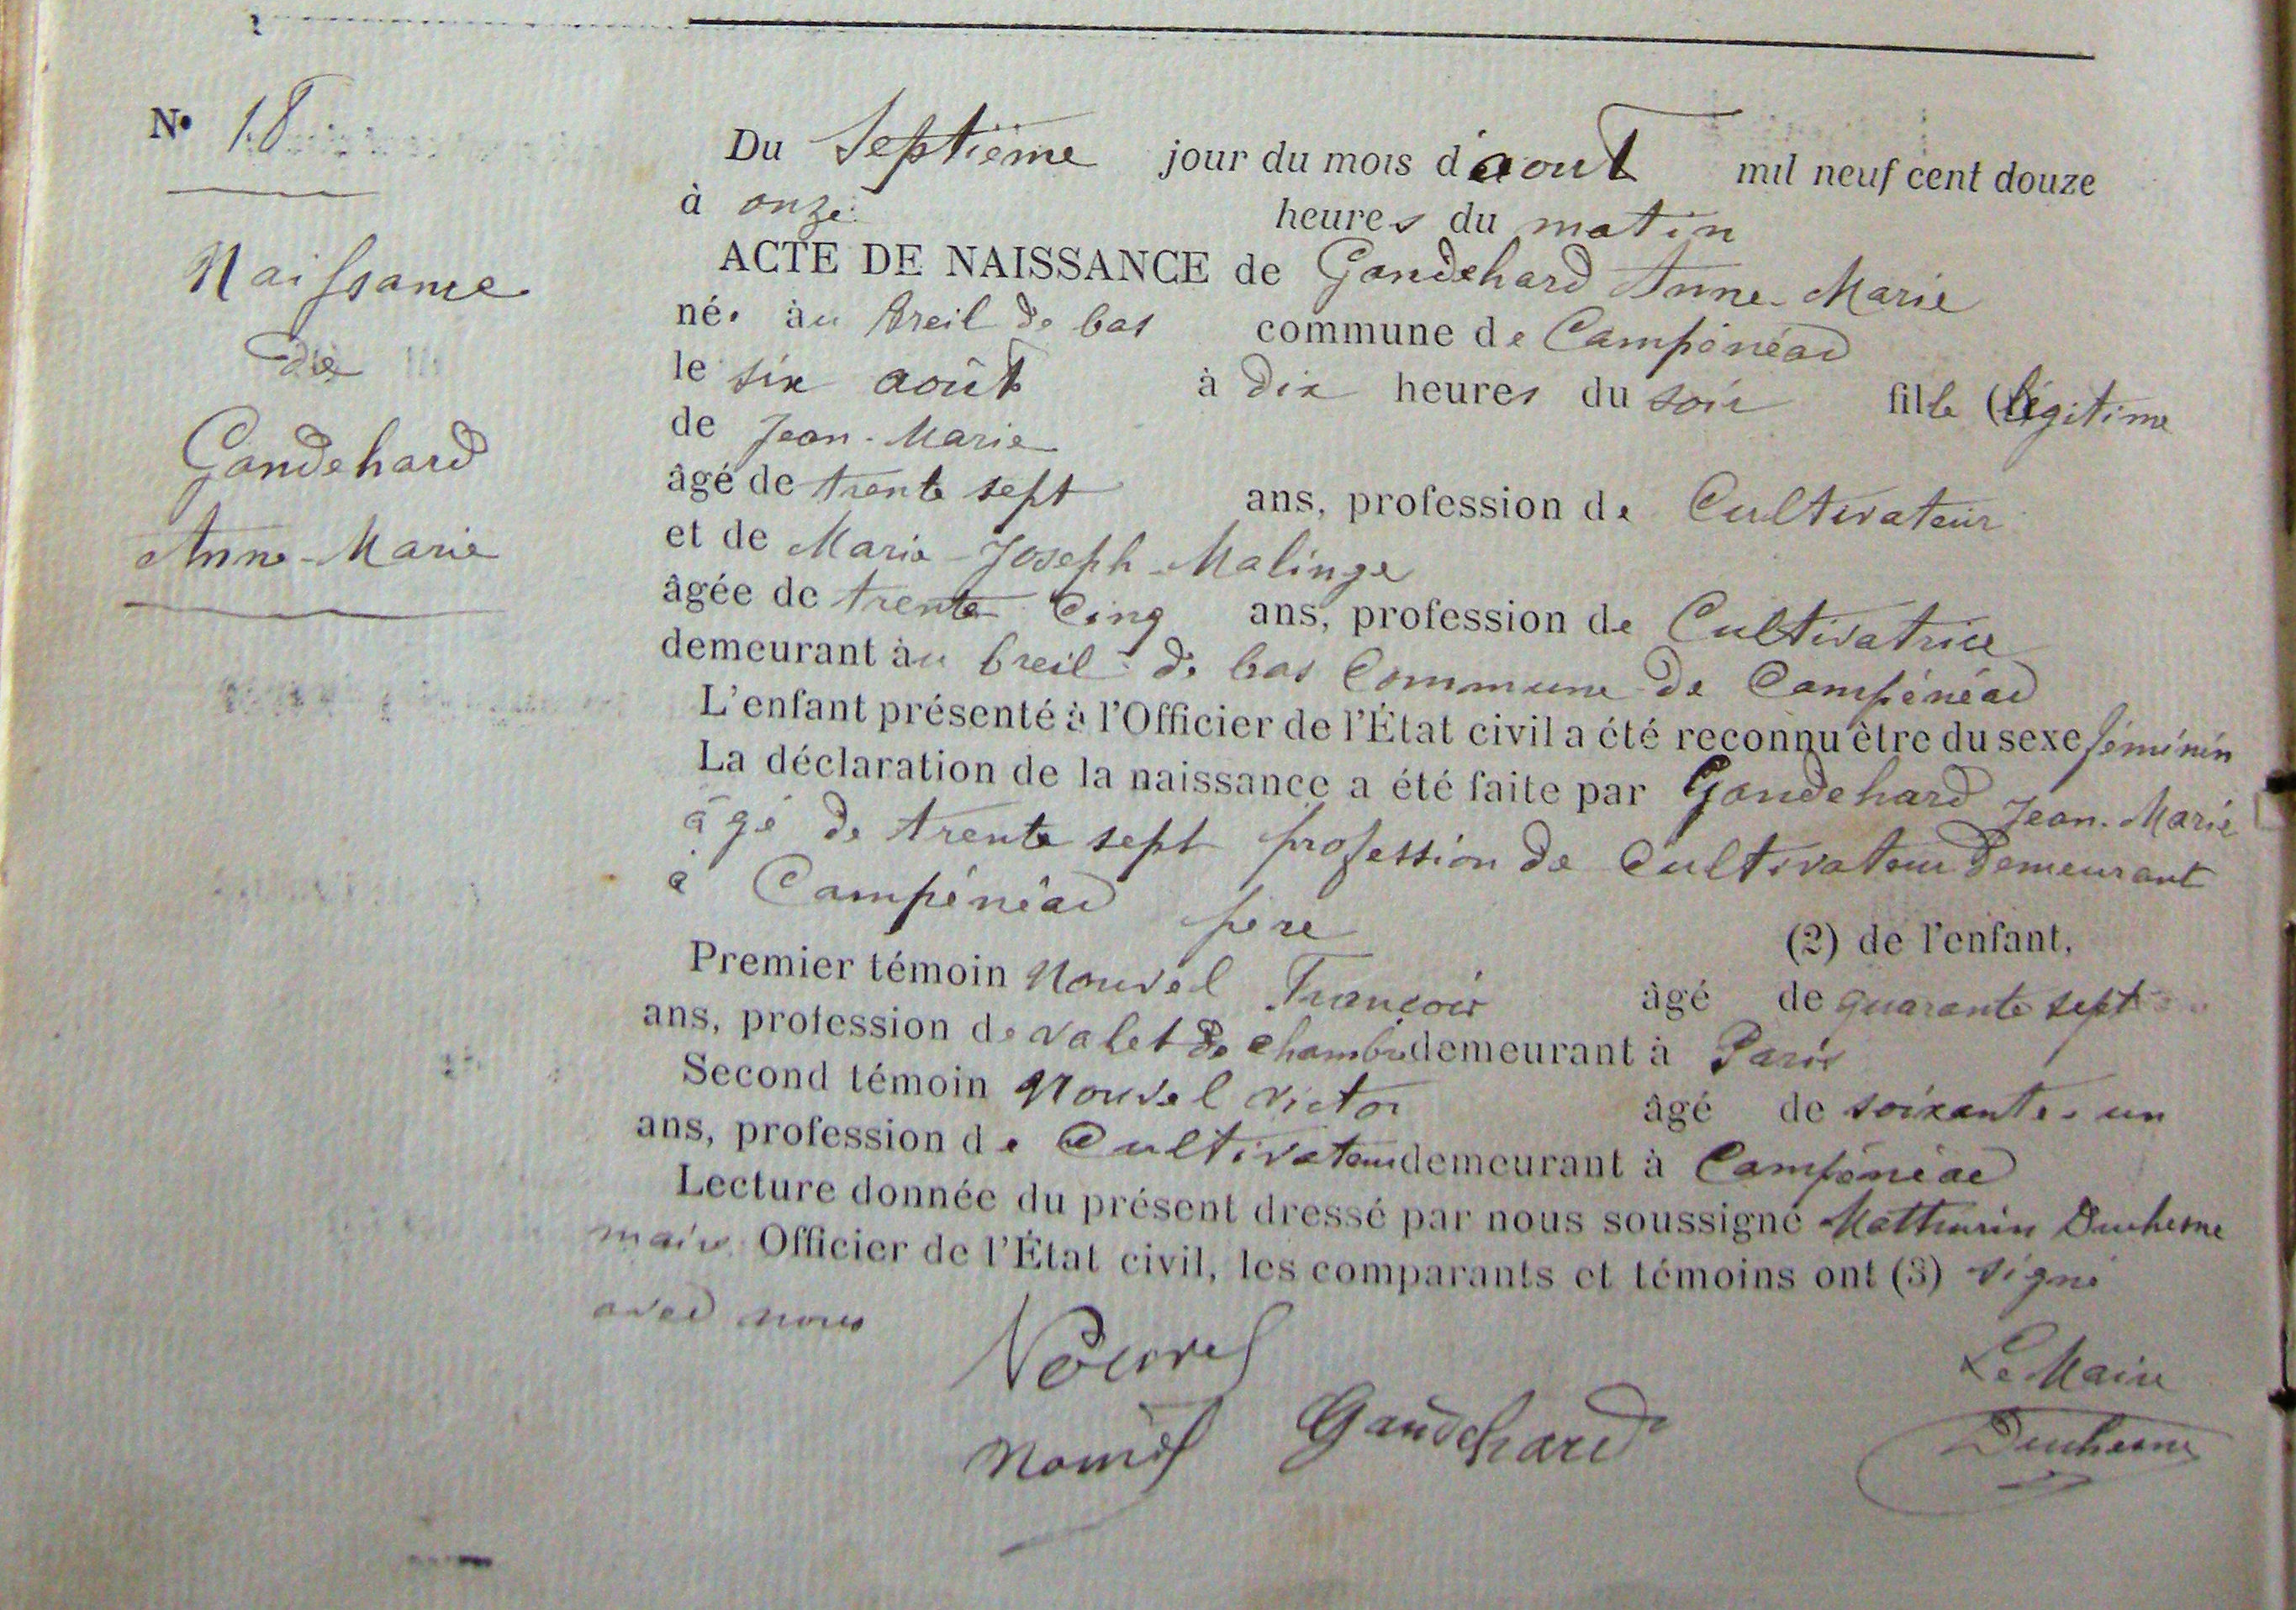 N° 18
Naissance
de
Gandehard
Anne-Marie
Du Septième jour du mois d'août mil neuf cent douze
à onze heures du matin
ACTE DE NAISSANCE de Gandehard Anne-Marie
née au breil de bas commune de Campénéac
le six août à dix heures du soir fille (légitime
de Jean-Marie
âgé de trente sept ans, profession de Cultivateur
et de Marie-Joseph Malinge
âgée de trente Cinq ans, profession de Cultivatrice
demeurant au breil de bas Commune de Campénéac
L'enfant présenté à l'Officier de l'État civil a été reconnu être du sexe féminin
La déclaration de la naissance a été faite par Gandehard Jean-Marie
âgé de trente sept profession de Cultivateur demeurant
à Campénéac père (2) de l'enfant,
Premier témoin Nouvel François âgé de quarante sept
ans, profession de valet de chambre demeurant à Paris
Second témoin Nouvel Victor âgé de soixante-un
ans, profession de Cultivateur demeurant à Campénéac
Lecture donnée du présent dressé par nous soussigné Mathurin Duchesne
maire Officier de l'État civil, les comparants et témoins ont (3) signé
avec nous
Nouvel
Nouvel Gandehard
Le Maire
Duchesne